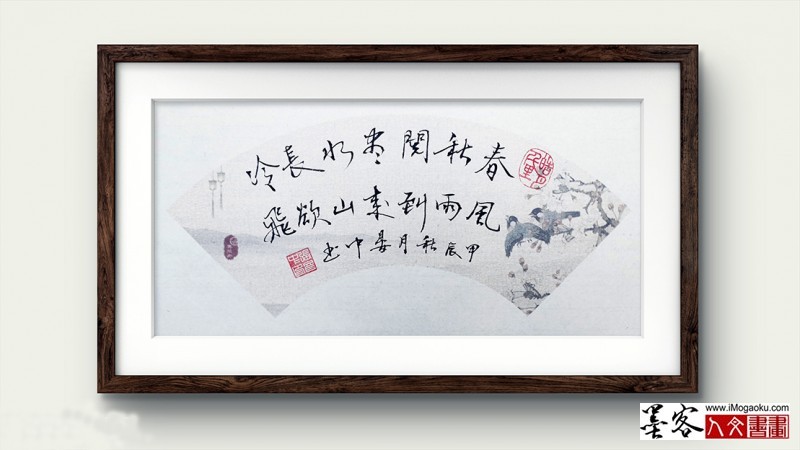 春秋閱尽水長冷
风雨到来山欲飛
甲辰秋月晏中书
www.iMogaoku.com
墨客人文書畫